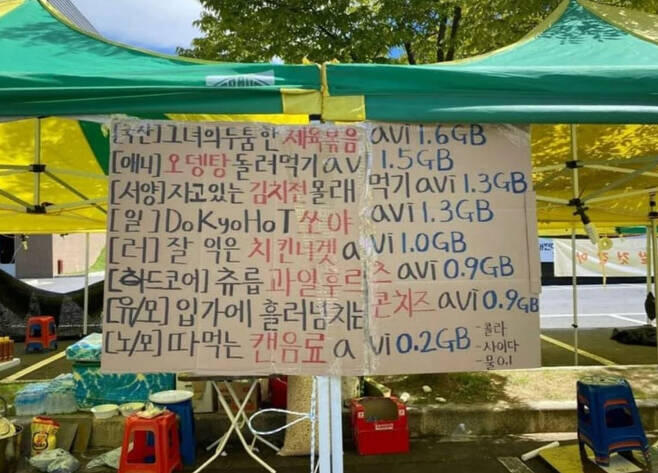 [국산]그녀의두툼한 제육볶음 avi 1.6GB
[애니]오뎅탕돌려먹기avi 1.5GB
[서양]자고있는 김치전몰래 먹기 avi 1.3GB
[일]DoKyoHoT 쏘야 avi 1.3GB
[러]잘 익은 치킨너겟 avi 1.0GB
[하드코어]츄릅 과일후르츠 avi 0.9GB
[유/모]입가에 흘러넘치는 콘치즈 avi 0.9GB
[노/모]따먹는 캔음료 avi 0.2GB
- 콜라
- 사이다
- 물 0.1